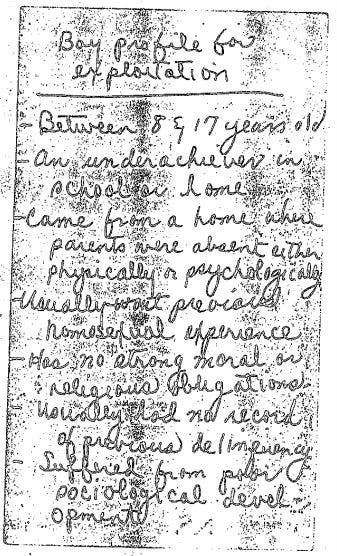 Boy profile for
exploitation
- Between 8 & 17 years old
- An underachiever in
school or home
- Came from a home where
parents were absent either
physically or psychologically
- Usually w/out previous
homosexual experience
- Has no strong moral or
religious obligations
- Usually had no record
of previous delinquency
- Suffered from poor
sociological devel-
opment